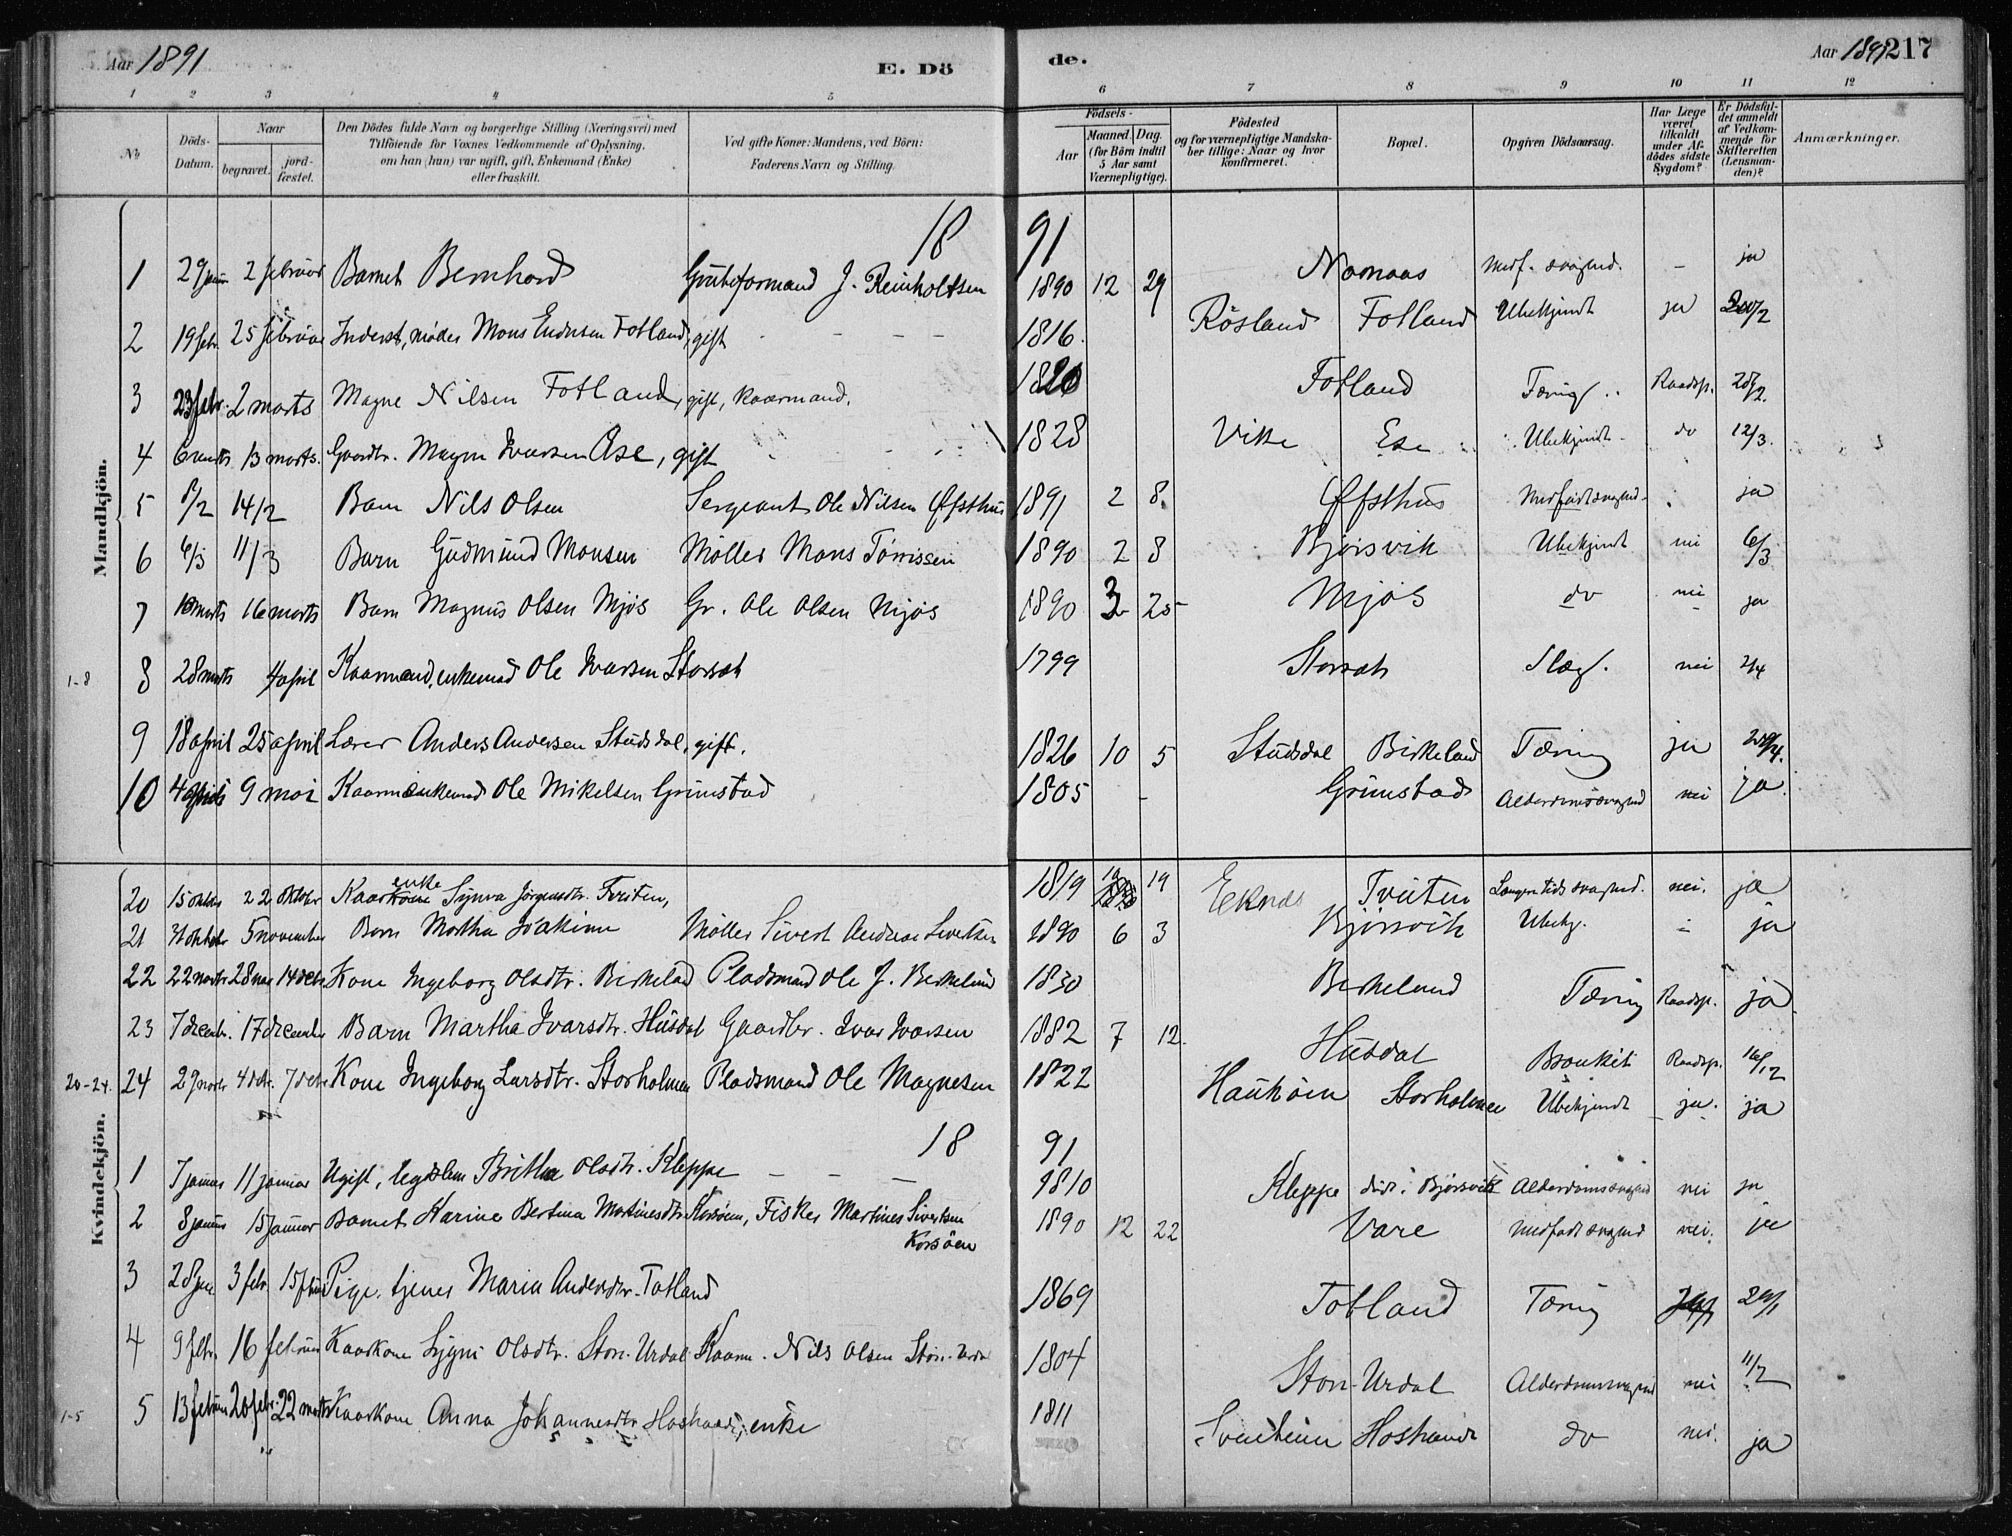 Aar 1891 E. Dö de. Aar 1891 217
1 2 3 4 5 6 7 8 9 10 11 12
No
Döds-Datum.
Naar
begravet.
jord-fæstet.
Den Dödes fulde Navn og borgerlige Stilling (Næringsvei) med
Tilföiende for Voxnes Vedkommende af Oplysning,
om han (hun) var ugift, gift, Enkemand (Enke)
eller fraskilt.
Ved gifte Koner: Mandens, ved Börn:
Faderens Navn og Stilling.
Födsels-
Aar
Maaned. Dag.
(for Börn indtil
5 Aar samt
Værnepligtige).
Födested
og for værnepligtige Mandska-
ber tillige: Naar og hvor
konfirmeret.
Bopæl.
Opgiven Dödsaarsag.
Har Læge
været
tilkaldt
under Af-
dödes sidste
Sygdom?
Er Dödsfal-
det anmeldt
af Vedkom-
mende for
Skifteretten
(Lensman-
den)?
Anmærkninger.
Mandkjön.
18 91
1 29 2 februar Barnet Bernhard J. Reinholtsen 1890 12 29 Namaas Medf. svaghed. - ja
2 19 febr. 25 februar Inderst, Mons Endresen Fotland, gift - - - 1816. Røsland Fotland Ubekjendt ja
3 23 febr. 2 marts Magne Nilsen Fotland, gift, Kaarmand. 1820 Fotland Tæring Raadsp. 28/2.
4 6 marts 13 marts. Gaardbr. Magne Ivarsen Ese, gift - - - 1828 Vike Ese Ubekjendt do 12/3.
5 8/2 14/2 Barn Nils Olsen Sergeant Ole Nilsen Øfsthus 1891 2 8. Øfsthus Medfødt svaghed ja
6 6/3 11/3 Barn Gudmund Monsen Møller Mons Tørrissen 1890 2 8 Bjørsvik Ubekjendt nei 6/3
7 marts 16 marts Barn Magnus Olsen Mjøs Gr. Ole Olsen Mjøs 1890 3 25 Mjøs do nei ja
1-8 8 28 marts 4 april Kaarmand, enkemand Ole Ivarsen Storset 1799 Storset Slag. nei 2/4
9 18 april 25 april Lærer Anders Andersen Studsdal, gift. 1826 10 5 Studsdal Birkeland Tæring ja
10 4 9 mai Kaarm. enkemand Ole Mikelsen Grimstad 1805 - Grimstad Alderdomssvaghed nei ja.
Kvindekjön.
20 15 oktbr 22 oktobr Kaarenke Synva Jørgensdtr. Tveiten, 1819 10 19 Eknes Tveiten Langvu tids svaghed. nei. ja
21 31 oktober 5 november Barn Martha Joakime Møller Sivert Andreas Sivertsen 1890 6 3 Bjørsvik Ubekj. - ja
22 22 novbr 28 nov 14 decbr Kone Ingeborg Olsdtr. Birkeland Pladsmand Ole J. Birkeland 1830 Birkeland Tæring Raadsp. ja.
23 7 decembr. 17 december Barn Martha Ivarsdtr. Husdal Gaardbr. Ivar Ivarsen 1882 7 12. Husdal Bronkit Raadsp. 16/12
20-24. 24 27 novbr 4 decbr. 7 decbr. Kone Ingeborg Larsdtr. Storholmen Pladsmand Ole Magnesen 1822 Haukøen Storholmen Ubekjendt ja. ja
18 91
1 7 januar 11 januar Ugift, legdslem Britha Olsdtr. Kleppe - - - 1810 Kleppe død i Bjørsvik Alderdomssvaghed nei ja
2 8 januar 15 januar Barnet Karine Bertina Martinesdtr Korsøen, Fisker Martines Sivertsen
Korsøen 1890 12 22 Vare Medfødt svaghed nei. ja
3 28 jan 3 febr. 15 febr. Pige, tjener Maria Andersdtr. Totland 1869 Totland Tæring 29/1
4 9 febr. 16 februar Kaarkone Sygni Olsdtr. Store-Urdal Kaarm. Nils Olsen Store-Urdal 1804 Store-Urdal Alderdomssvaghed nei 11/2
1-5 5 13 februar 20 febr. 22 marts Kaarkone Anna Johannesdtr Hoshaade, enke 1811 Hoshaude do nei. ja